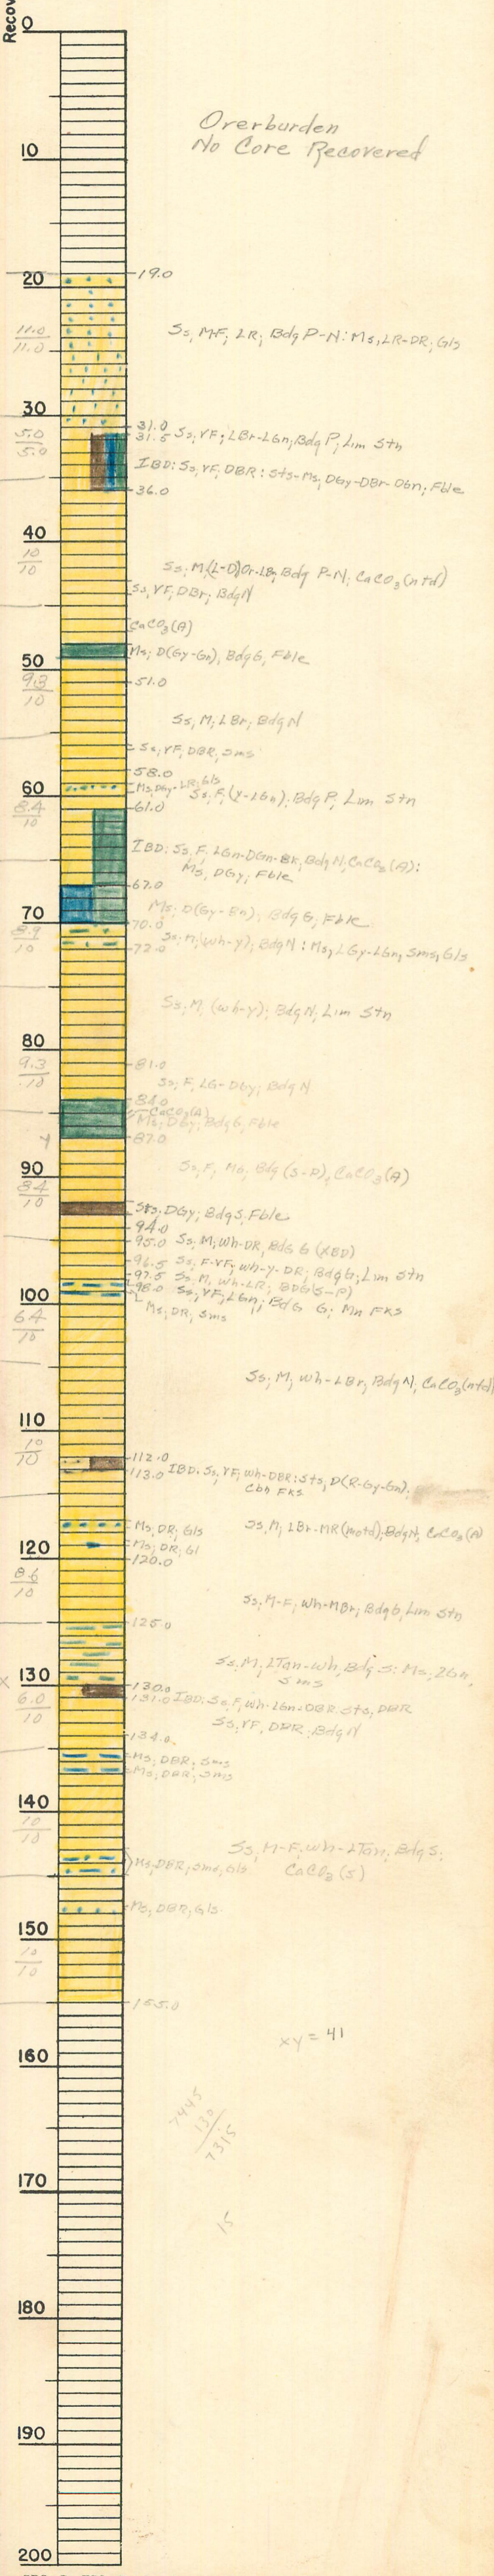 Recov
0
Overburden
No Core Recovered
10
19.0
20
11.0
11.0
Ss, M-F, LR, Bdg P-N: Ms, LR-DR, Gls
30
31.0
31.5 Ss, VF; LBr-LGn, Bdg P, Lim Stn
5.0
5.0
IBD: Ss, VF, DBR: Sts-Ms, DGy-DBr-DGn; Fble
36.0
40
10
10
Ss, M, (L-D)Or-LBr, Bdg P-N, CaCO3(ntd)
Ss, VF, DBr, BdgN
CaCO3(A)
Ms; D(Gy-Gn), BdgG, Fble
50
9.3
10
51.0
Ss, M, LBr, Bdg N
Ss, VF, DBR, sms
58.0
Ms, DGy-LR, Gls
60
Ss, F, (y-LGn), Bdg P, Lim Stn
61.0
8.4
10
IBD: Ss, F, LGn-DGn-BK, Bdg N, CaCO3(A):
Ms, DGy, Fble
67.0
Ms, D(Gy-Bn), Bdg G, Fble
70
70.0
8.9
10
Ss, M, (wh-y), Bdg N: Ms, LGy-LGn, Sms, Gls
72.0
Ss, M, (wh-y); Bdg N, Lim Stn
80
81.0
9.3
10
Ss, F, LG-DGy; Bdg N
84.0
CaCO3(A)
Ms, DGy, BdgG, Fble
87.0
Y
90
Ss, F, MG, Bdg (S-P), CaCO3(A)
8.4
10
Sts, DGy, Bdg S, Fble
94.0
95.0 Ss, M, Wh-DR, Bdg G (XBD)
96.5 Ss, F-VF, wh-y-DR; BdgG, Lim Stn
97.5 Ss, M, wh-LR; BDG(S-P)
98.0 Ss, VF, LGn, Bdg G; Mn FKS
100
Ms, DR, sms
6.4
10
Ss, M, wh-LBr, Bdg N, CaCO3(ntd)
110
10
10
112.0
113.0 IBD: Ss, VF, Wh-DBR: Sts, D(R-Gy-Gn),
Cbn FKS
Ms, DR, Gls
Ss, M, LBr-MR(motd), BdgN, CaCO3(A)
Ms, DR, Gl
120
120.0
8.6
10
Ss, M-F, Wh-MBr, BdgG, Lim Stn
125.0
Ss, M, LTan-Wh, Bdg S: Ms, LGn,
sms
130
X
130.0
131.0 IBD: Ss, F, Wh-LGn-DBR: Sts, DBR
6.0
10
Ss, VF, DBR, Bdg N
134.0
Ms, DBR, Sms
Ms, DBR, Sms
140
10
10
Ss, M-F, wh-LTan, Bdg S,
CaCO3(S)
Ms, DBR, sms, Gls
Ms, DBR, Gls
150
10
10
155.0
xy = 41
160
7445
130
7315
170
15
180
190
200